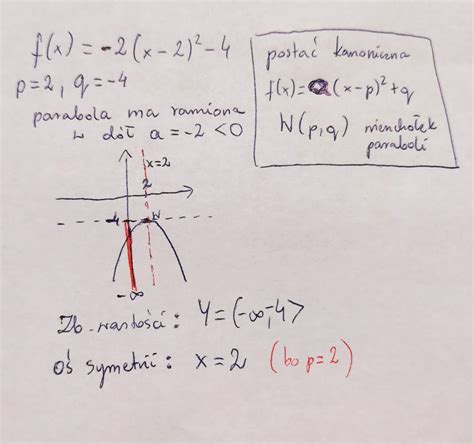 f(x) = -2(x-2)²-4
p=2, q=-4
parabola ma ramiona
w dół a=-2 <0
postać kanoniczna
f(x)=a(x-p)²+q
W(p,q) wierzchołek
paraboli
x=2
2
-4
W
-∞
Zb. wartości: Y=(-∞,-4>
oś symetrii: x=2 (bo p=2)